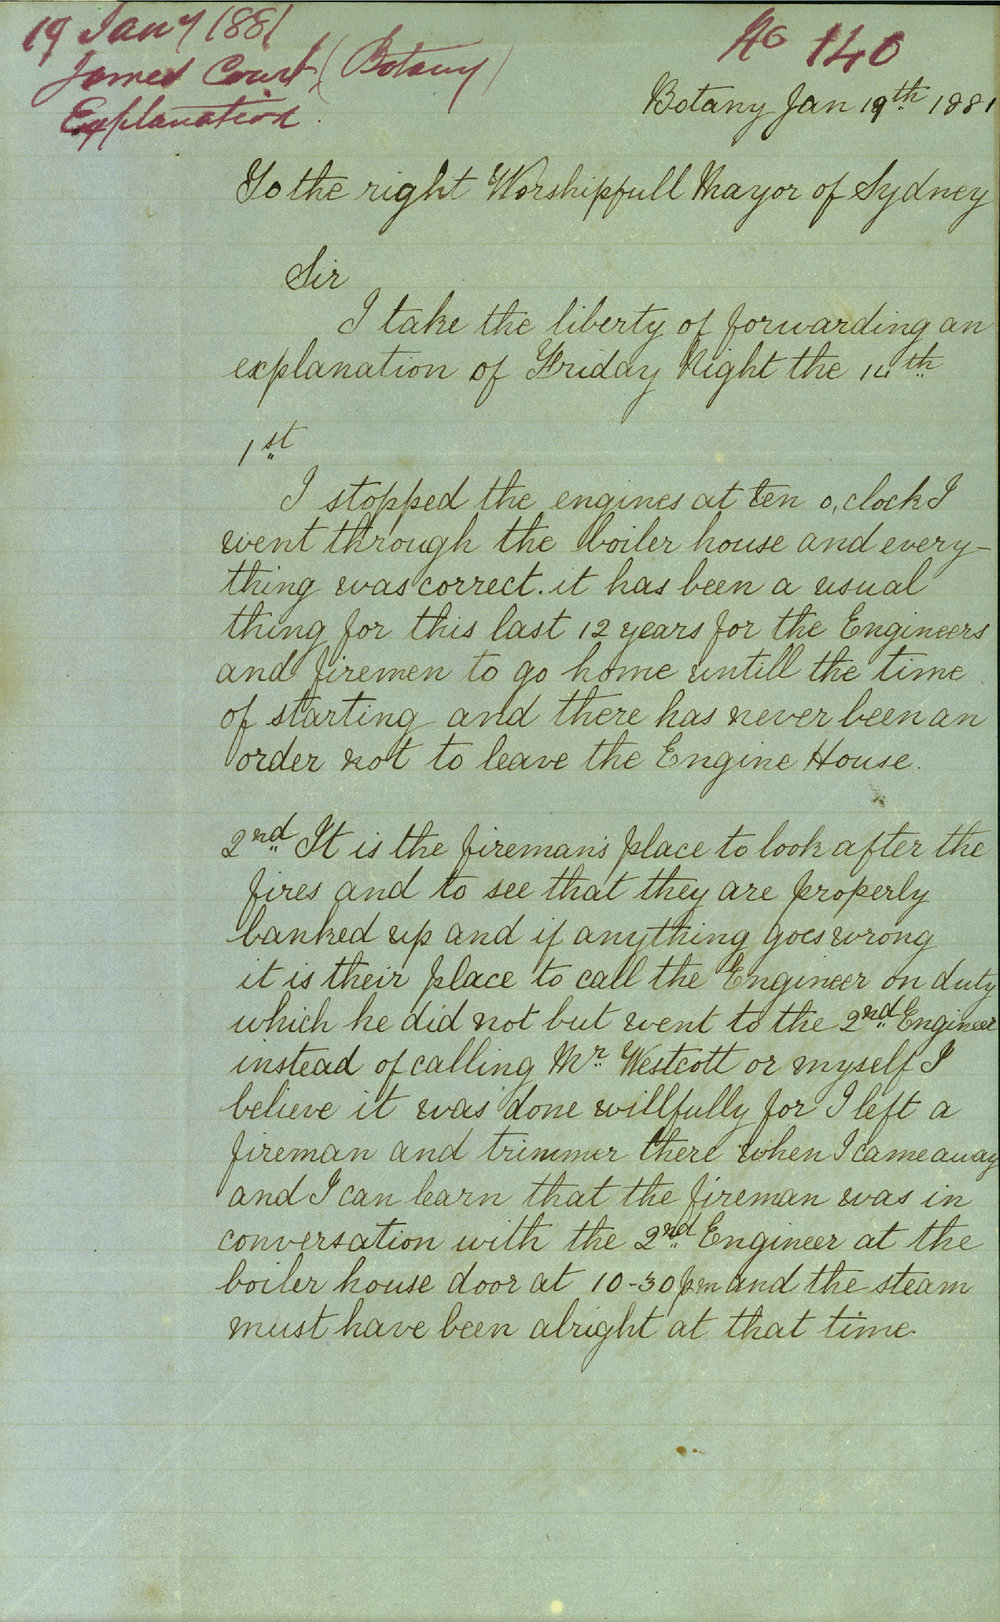 19 Jany 1881
James Court (Botany)
Explanation
No 140
Botany Jan 19th 1881
To the right Worshipfull Mayor of Sydney
Sir
I take the liberty of forwarding an
explanation of Friday Night the 14th
1st
I stopped the engines at ten o,clock I
went through the boiler house and every-
thing was correct. it has been a usual
thing for this last 12 years for the Engineers
and firemen to go home untill the time
of starting and there has never been an
order not to leave the Engine House.
2nd It is the fireman's place to look after the
fires and to see that they are properly
banked up and if anything goes wrong
it is their place to call the Engineer on duty
which he did not but went to the 2nd Engineer
instead of calling Mr Westcott or myself I
believe it was done willfully for I left a
fireman and trimmer there when I came away
and I can learn that the fireman was in
conversation with the 2nd Engineer at the
boiler house door at 10-30 pm and the steam
must have been alright at that time.